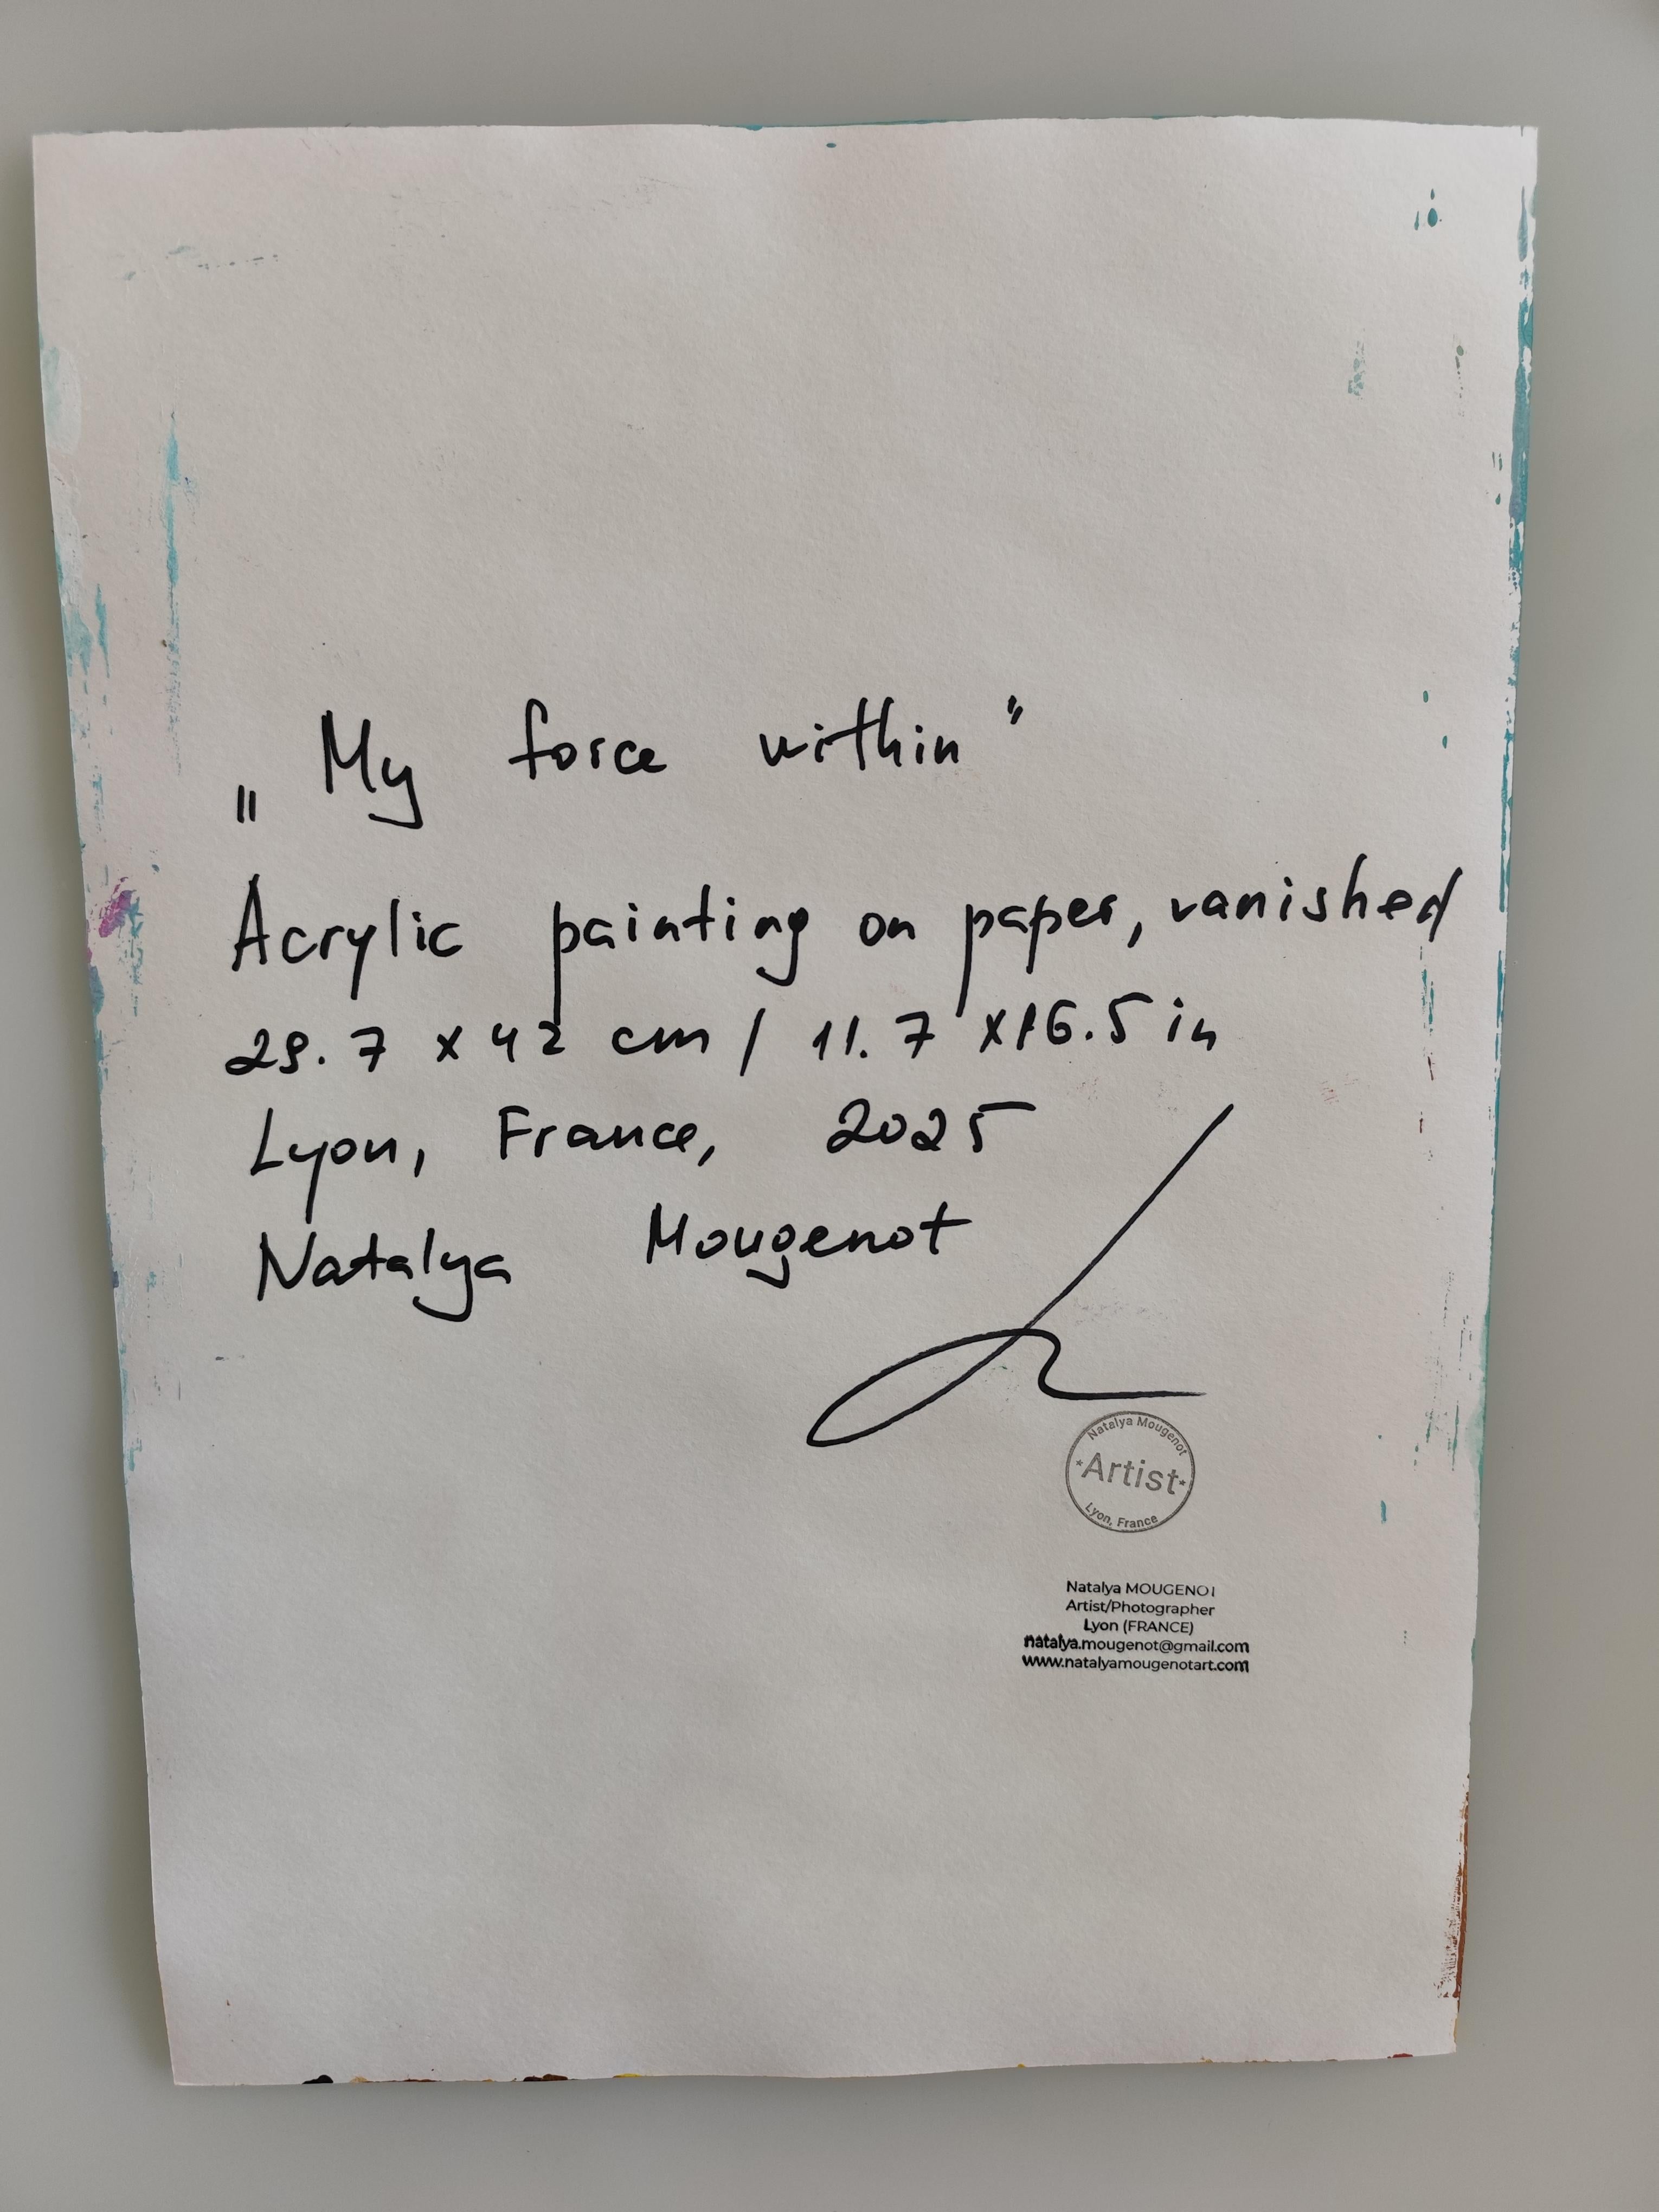 „My force within”
Acrylic painting on paper, vanished
29.7 x 42 cm / 11.7 x 16.5 in
Lyon, France, 2025
Natalya Mougenot
Natalya Mougenot
*Artist*
Lyon, France
Natalya MOUGENOT
Artist/Photographer
Lyon (FRANCE)
natalya.mougenot@gmail.com
www.natalyamougenotart.com